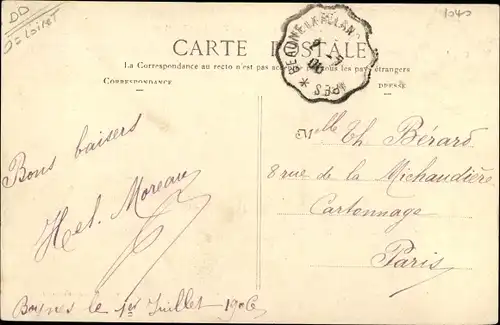 DD
D= Loiret
1040
CARTE POSTALE
La Correspondance au recto n'est pas acceptée par tous les pays étrangers
CORRESPONDANCE
ADRESSE
BEAUNE
Bons baisers
H et L. Moreau
Boynes le 1er Juillet 1906
Mlle Th. Bérard
8 rue de la Michaudière
Cartonnage
Paris